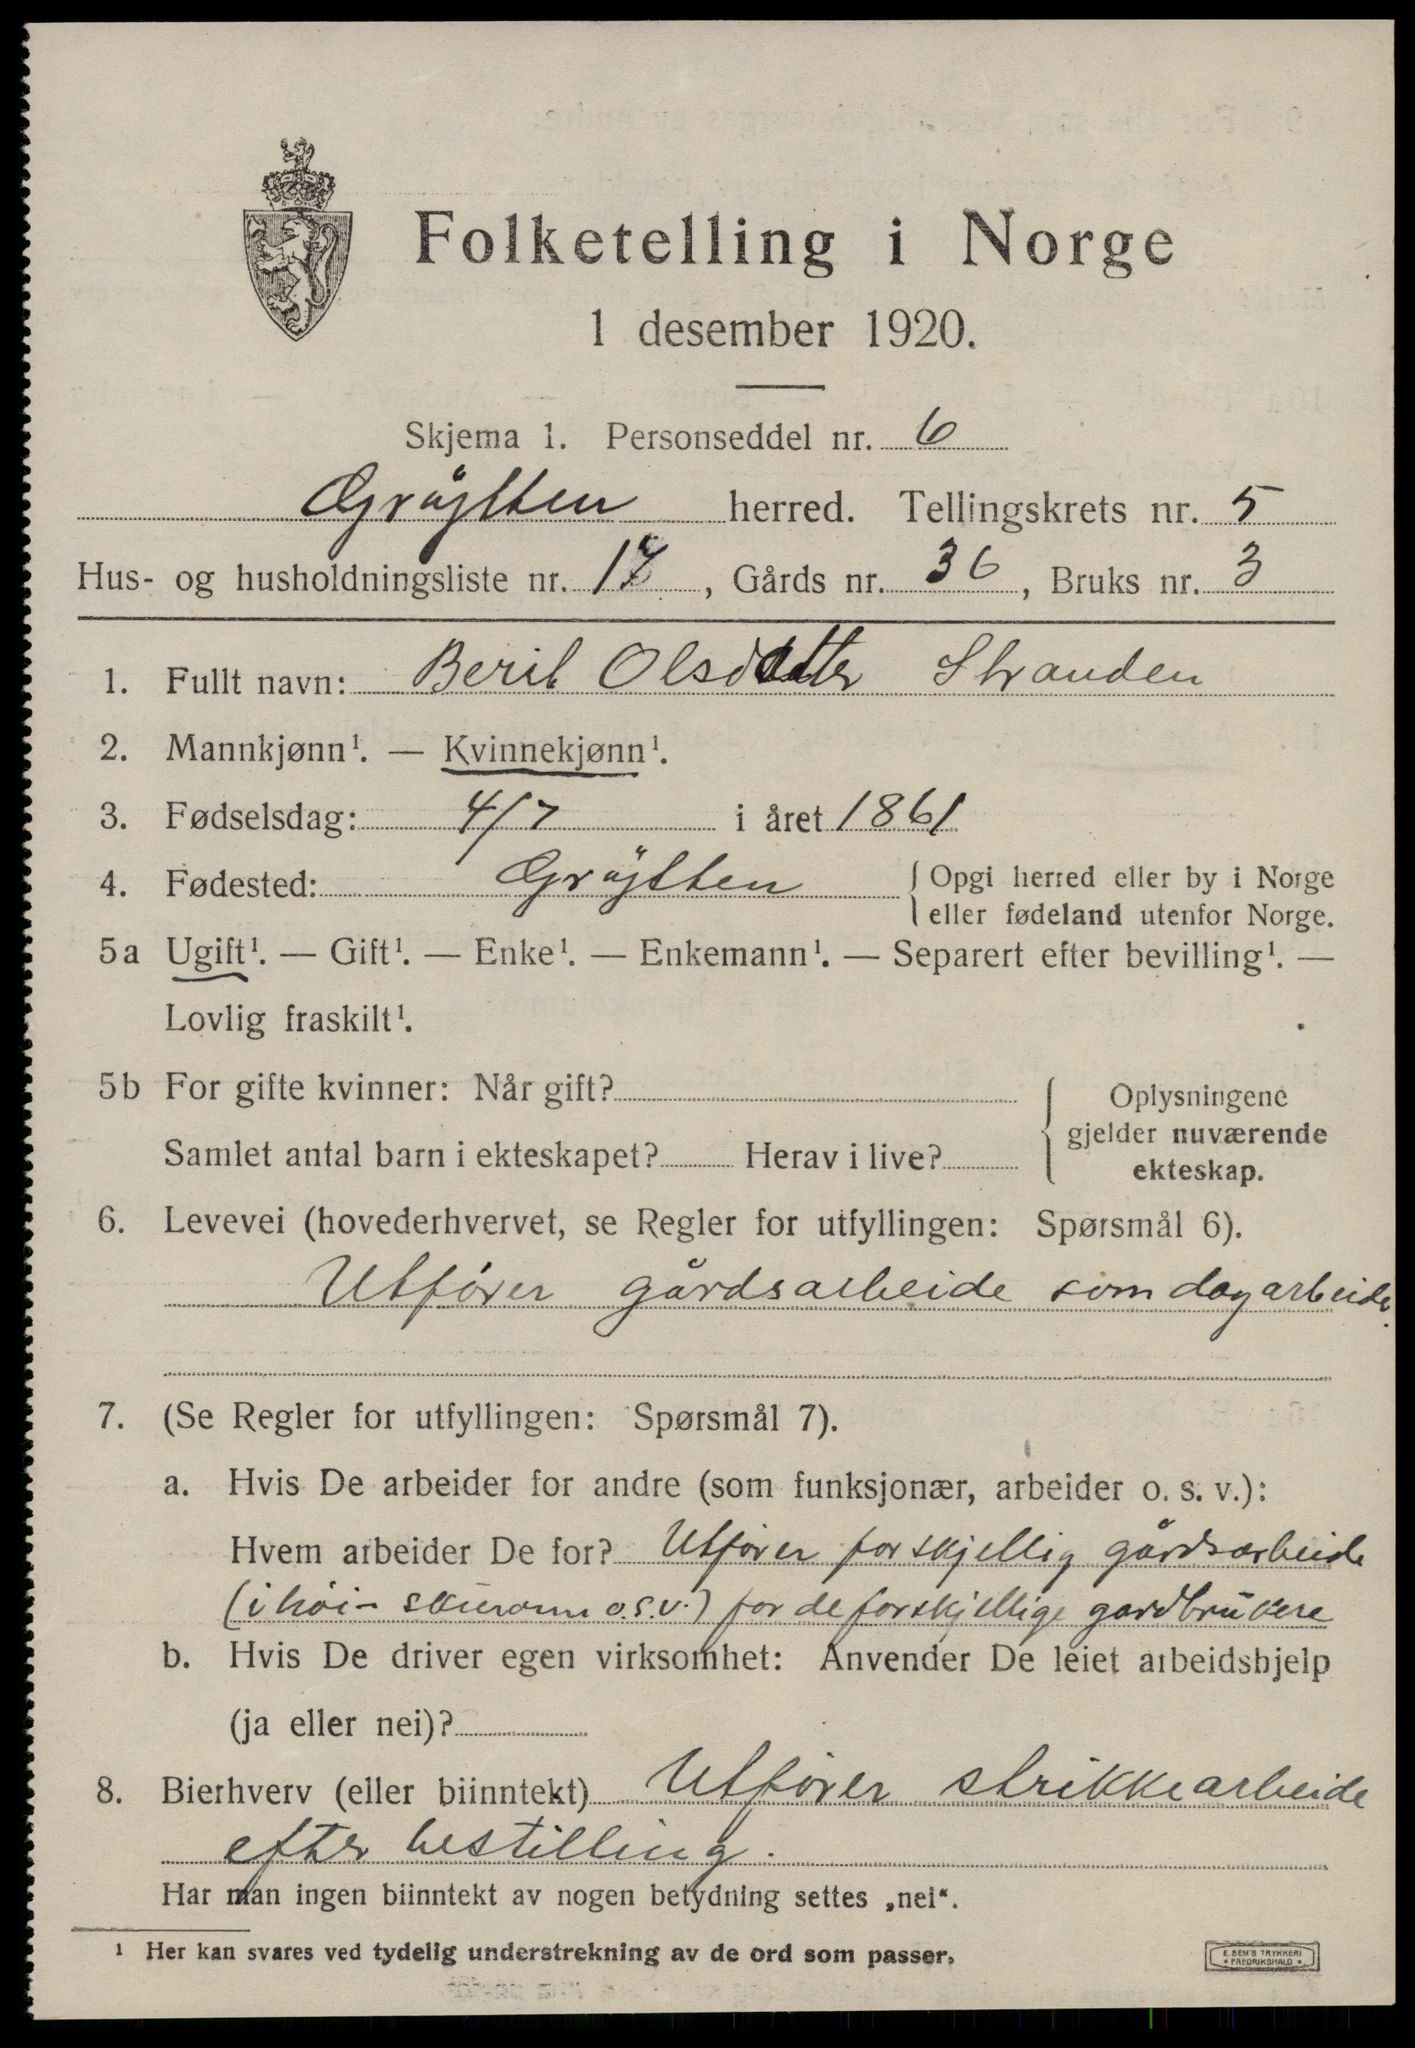 Folketelling i Norge
1 desember 1920.
Skjema 1. Personseddel nr. 6
Grøtten herred. Tellingskrets nr. 5
Hus- og husholdningsliste nr. 17, Gårds nr. 36, Bruks nr. 3
1. Fullt navn: Berit Olsdatter Stranden
2. Mannkjønn¹. — Kvinnekjønn¹.
3. Fødselsdag: 4/7 i året 1861
4. Fødested: Grøtten { Opgi herred eller by i Norge
eller fødeland utenfor Norge.
5a Ugift¹. — Gift¹. — Enke¹. — Enkemann¹. — Separert efter bevilling¹. —
Lovlig fraskilt¹.
5b For gifte kvinner: Når gift?
Samlet antal barn i ekteskapet? Herav i live?
Oplysningene
gjelder nuværende
ekteskap.
6. Levevei (hovederhvervet, se Regler for utfyllingen: Spørsmål 6).
Utfører gårdsarbeide som dagarbeide.
7. (Se Regler for utfyllingen: Spørsmål 7).
a. Hvis De arbeider for andre (som funksjonær, arbeider o. s. v.):
Hvem arbeider De for? Utfører forskjellig gårdsarbeide
(i høi- skuronn o.s.v.) for de forskjellige gardbrukere
b. Hvis De driver egen virksomhet: Anvender De leiet arbeidshjelp
(ja eller nei)?
8. Bierhverv (eller biinntekt) Utfører strikkearbeide
efter bestilling.
Har man ingen biinntekt av nogen betydning settes „nei“.
¹ Her kan svares ved tydelig understrekning av de ord som passer.
E. SEM'S TRYKKERI
FREDRIKSHALD